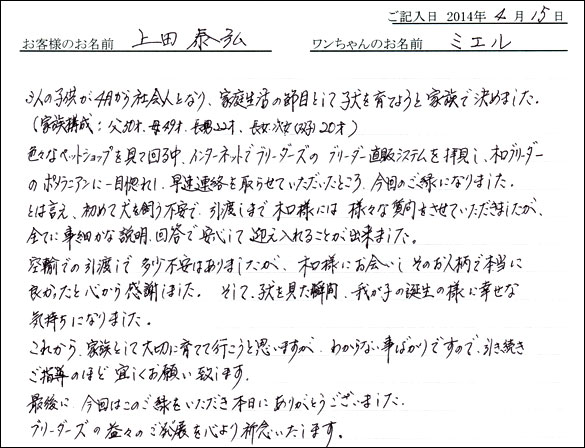 ご記入日 2014年 4月 15日
お客様のお名前 上田 泰弘 ワンちゃんのお名前 ミエル
3人の子供が4月から社会人となり、家庭生活の節目として子犬を育てようと家族で決めました。
(家族構成:父50才、母49才、長男22才、長女次女(双子)20才)
色々なペットショップを見て回る中、インターネットでブリーダーズのブリーダー直販システムを拝見し、木口ブリーダー
のポメラニアンに一目惚れし、早速連絡を取らせていただいたところ、今回のご縁になりました。
とは言え、初めて犬を飼う不安で、引渡しまで木口様には様々な質問をさせていただきましたが、
全てに事細かな説明、回答で安心して迎え入れることが出来ました。
空輸での引渡しで多少不安はありましたが、木口様にお会いしそのお人柄で本当に
良かったと心から感謝しました。そして、子犬を見た瞬間、我が子の誕生の様に幸せな
気持ちになりました。
これから、家族として大切に育てて行こうと思いますが、わからない事ばかりですので、引き続き
ご指導のほど宜しくお願い致します。
最後に、今回はこのご縁をいただき本日にありがとうございました。
ブリーダーズの益々のご発展を心より祈念いたします。